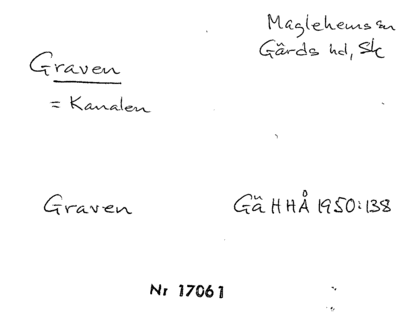 Maglehems sn
Gärds hd, Sk
Graven
= Kanalen
Graven
Gä HHÅ 1950:138
Nr 17061